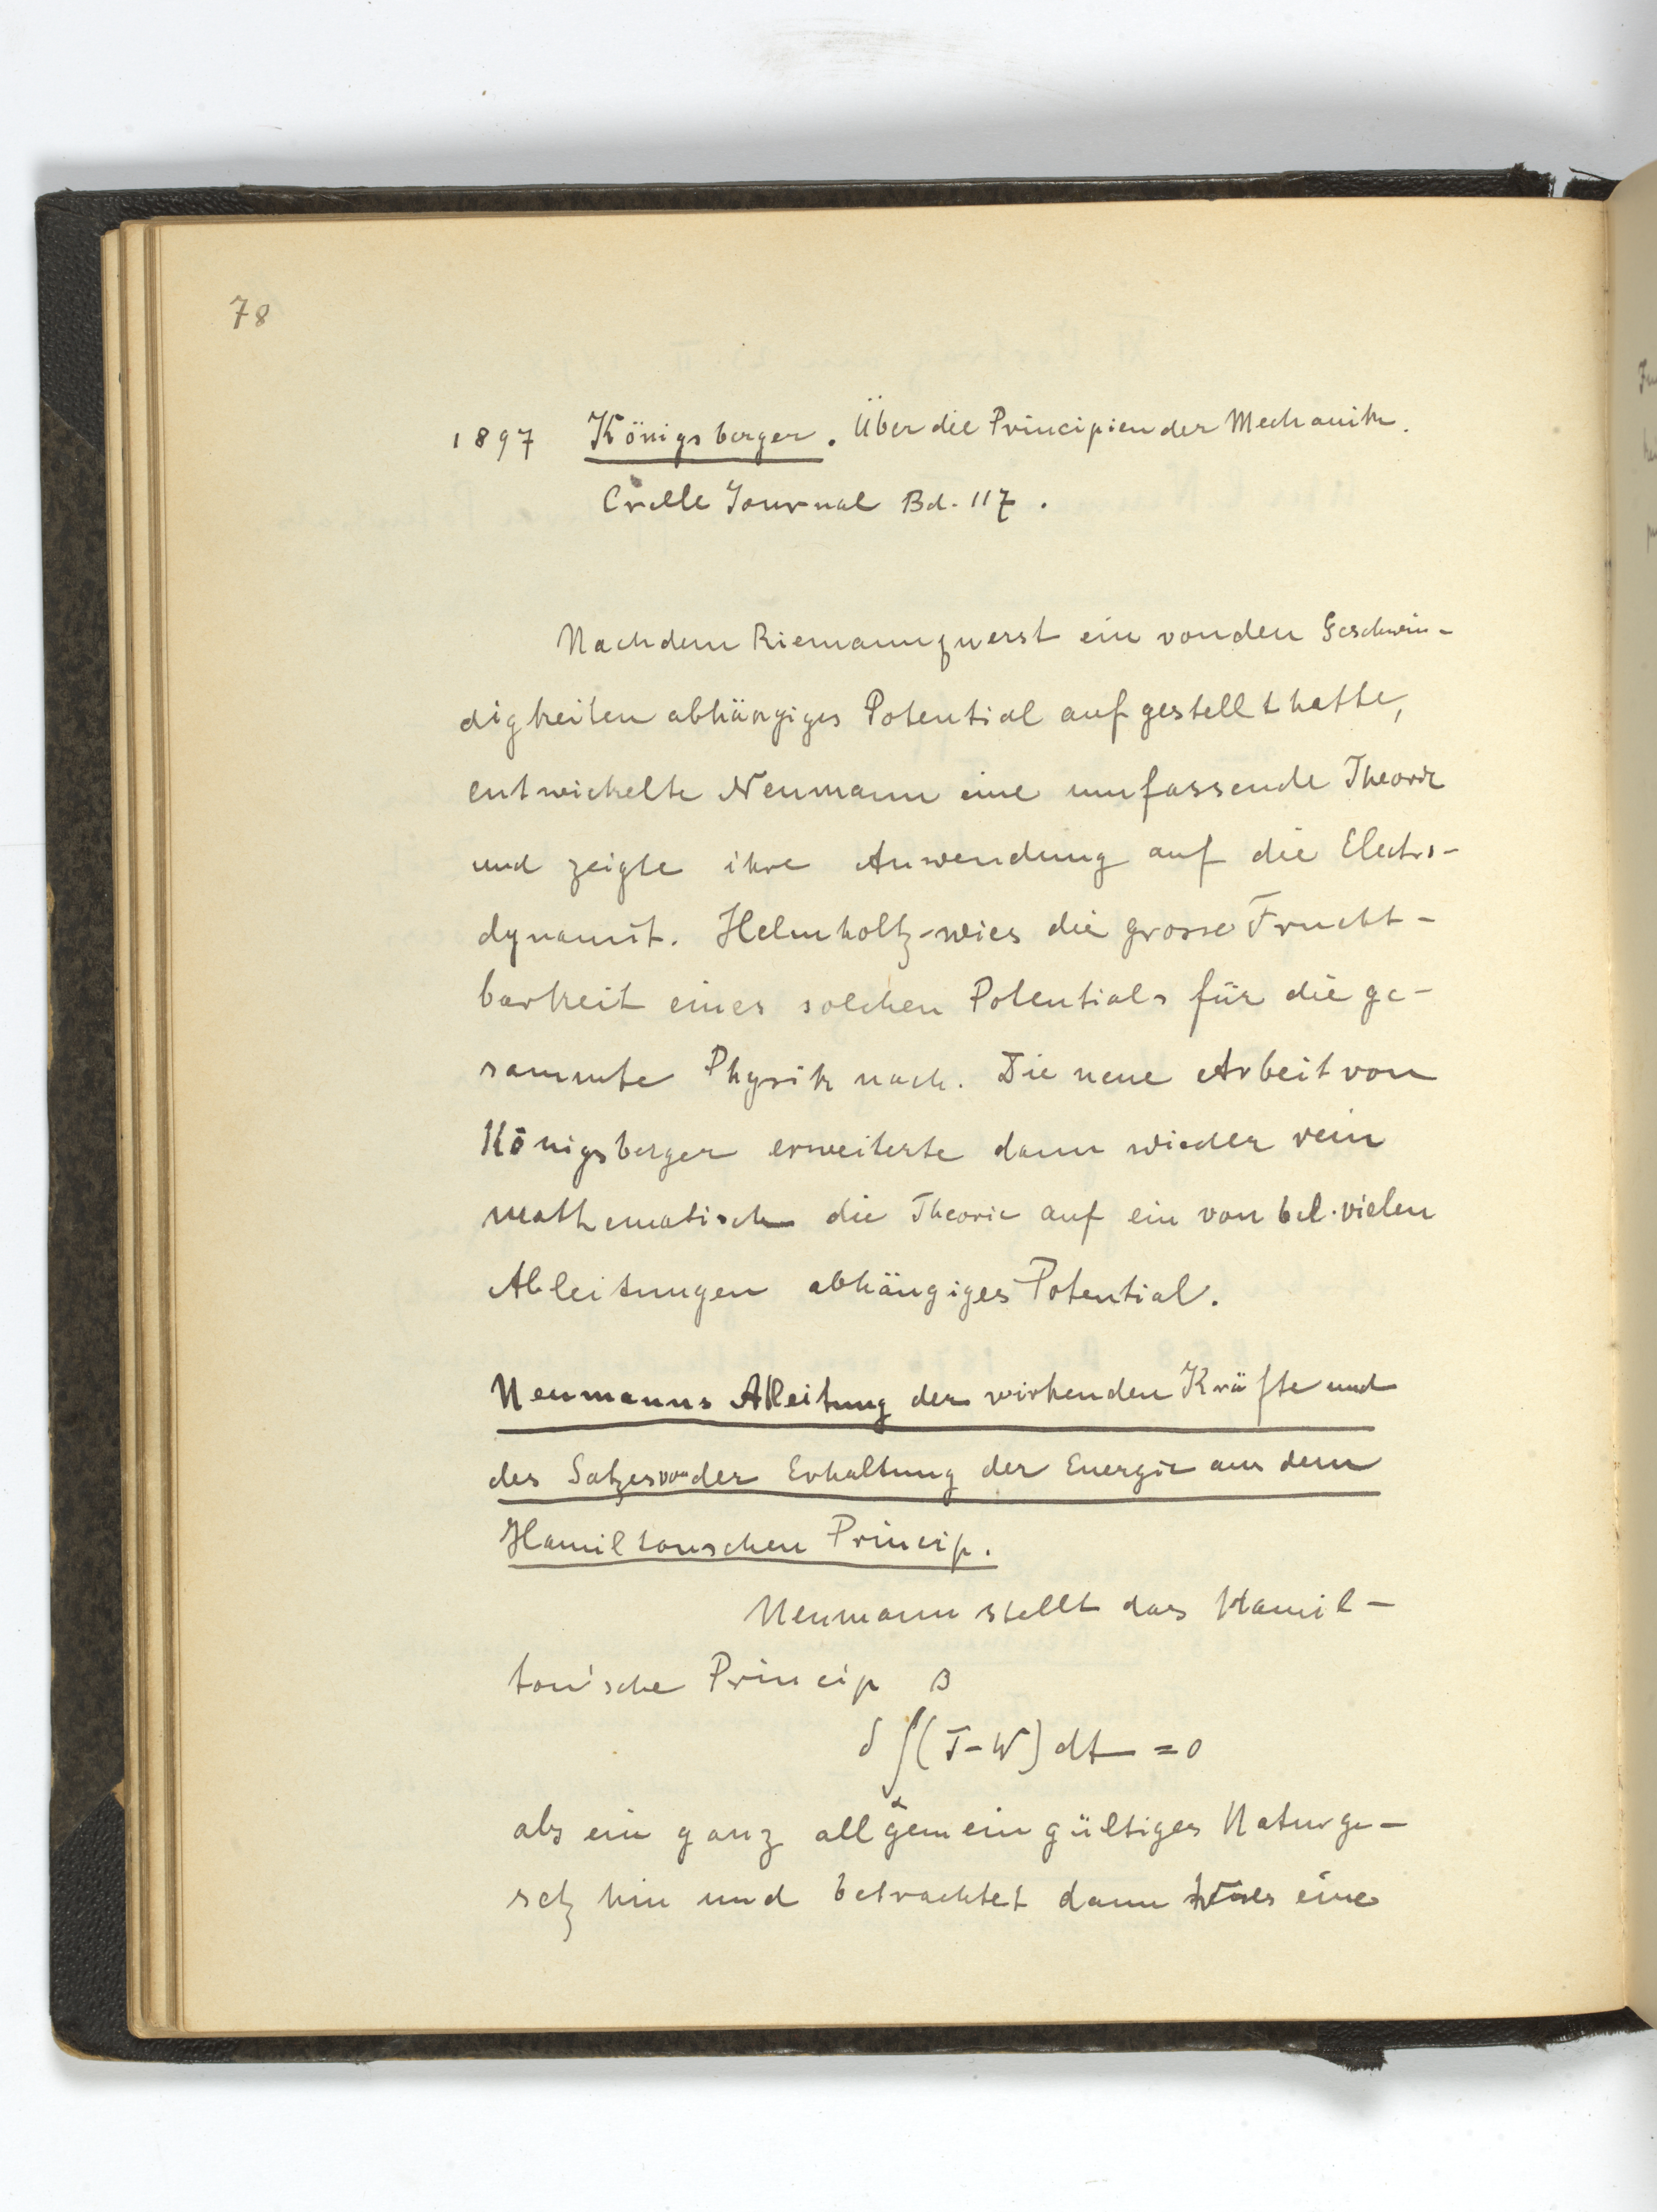 78
1897 Königsberger. Über die Principien der Mechanik.
Crelle Journal Bd. 117.
Nachdem Riemann zuerst ein von den Geschwin-
digkeiten abhängiges Potential aufgestellt hatte,
entwickelte Neumann eine umfassende Theorie
und zeigte ihre Anwendung auf die Electro-
dynamik. Helmholtz wies die grosse Frucht-
barkeit eines solchen Potentials für die ge-
sammte Physik nach. Die neue Arbeit von
Königsberger erweiterte dann wieder rein
mathematisch die Theorie auf ein von bel. vielen
Ableitungen abhängiges Potential.
Neumanns Ableitung der wirkenden Kräfte und
des Satzes von der Erhaltung der Energie aus dem
Hamiltonschen Princip.
Neumann stellt das Hamil-
ton'sche Princip
β
δ∫(T-W)dt = 0
α
als ein ganz allgemein gültiges Naturge-
setz hin und betrachtet dann als eine